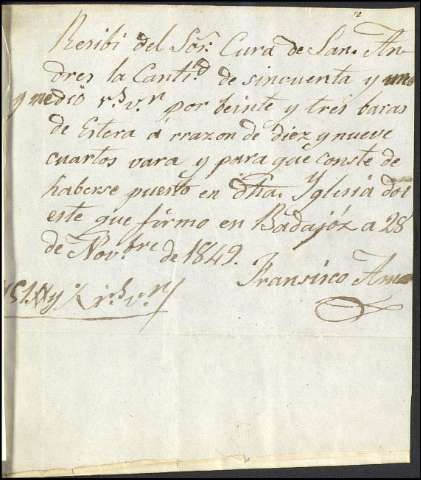 Resibi del Sor. Cura de San. An-
dres la Cantid de sincuenta y uno
y medio rs. vn por beinte y tres baras
de Estera á rrazon de diez y nueve
cuartos vara y para que conste de
haberse puesto en dha. Yglesia doi
este que firmo en Badajóz a 28
de Novbre. de 1849.
Fransisco
rs. vn